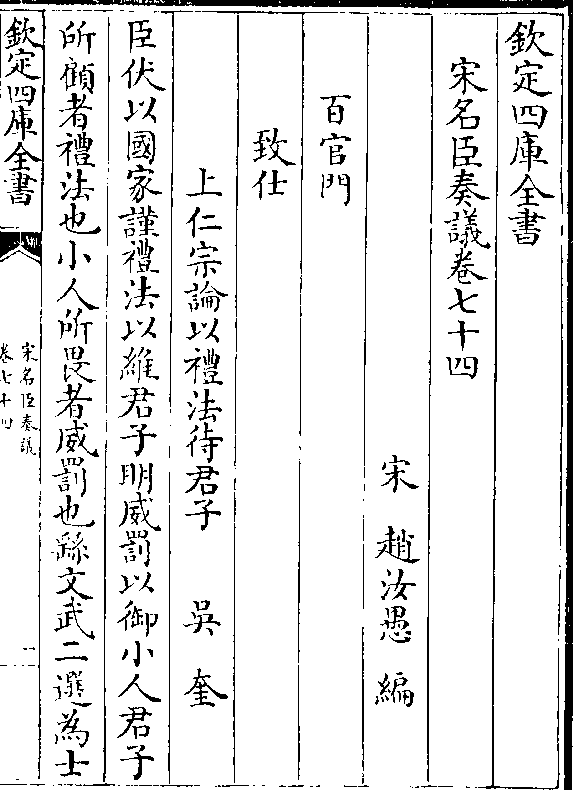 欽定四庫全書
宋名臣奏議卷七十四
宋　趙汝愚　編
百官門
致仕
上仁宗論以禮法待君子　　吳奎
臣伏以國家謹禮法以維君子明威罰以御小人君子
所顧者禮法也小人所畏者威罰也繇文武二選為士
欽定四庫全書
宋名臣奏議
卷七十四
一